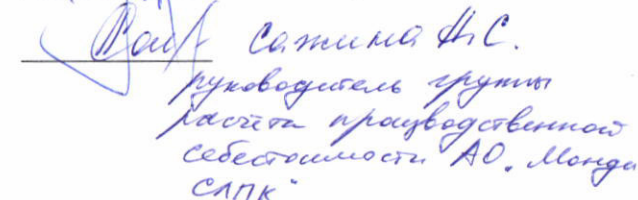 Сажина Н.С.
руководитель группы
расчёта производственной
себестоимости АО „Монди
СЛПК"